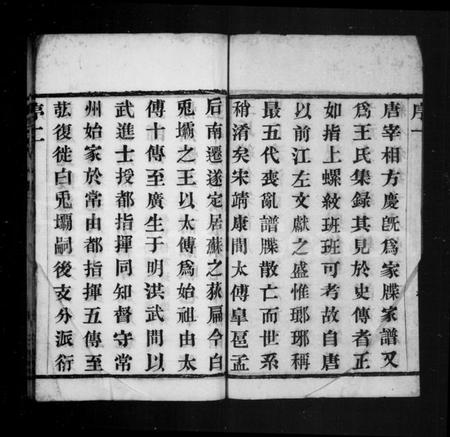 序一
唐宰相方慶旣爲家牒家譜又
爲王氏集録其見於史傳者正
如指上螺紋班班可考故自唐
以前江左文獻之盛惟瑯琊稱
最五代喪亂譜牒散亡而世系
稍淆矣宋靖康間太傅臯邑孟
后南遷遂定居蘇之荻扁今白
兎壩之王以太傅爲始祖由太
傅十傳至廣生于明洪武間以
武進士授都指揮同知督守常
州始家於常由都指揮五傳至
葒復徙白兎壩嗣後支分派衍
序二